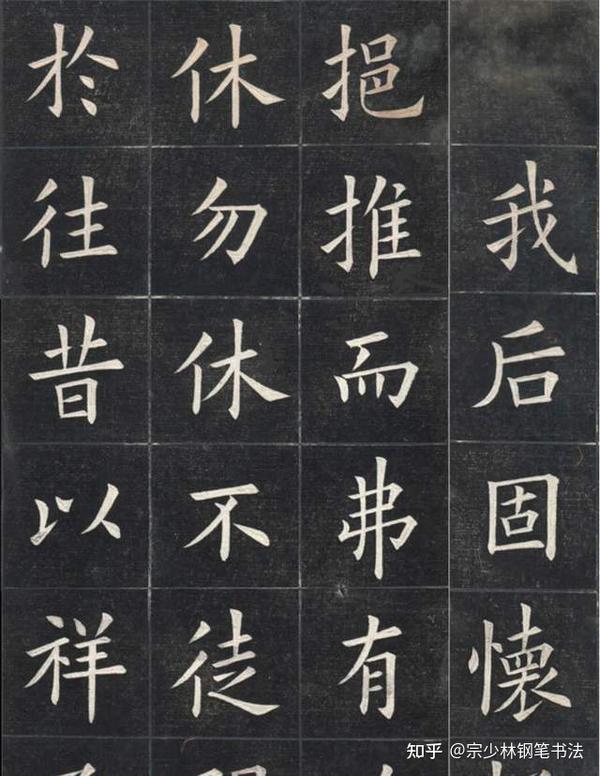 我后固懐
挹推而弗有
休勿休不徒
於往昔以祥
知乎 @宗少林钢笔书法